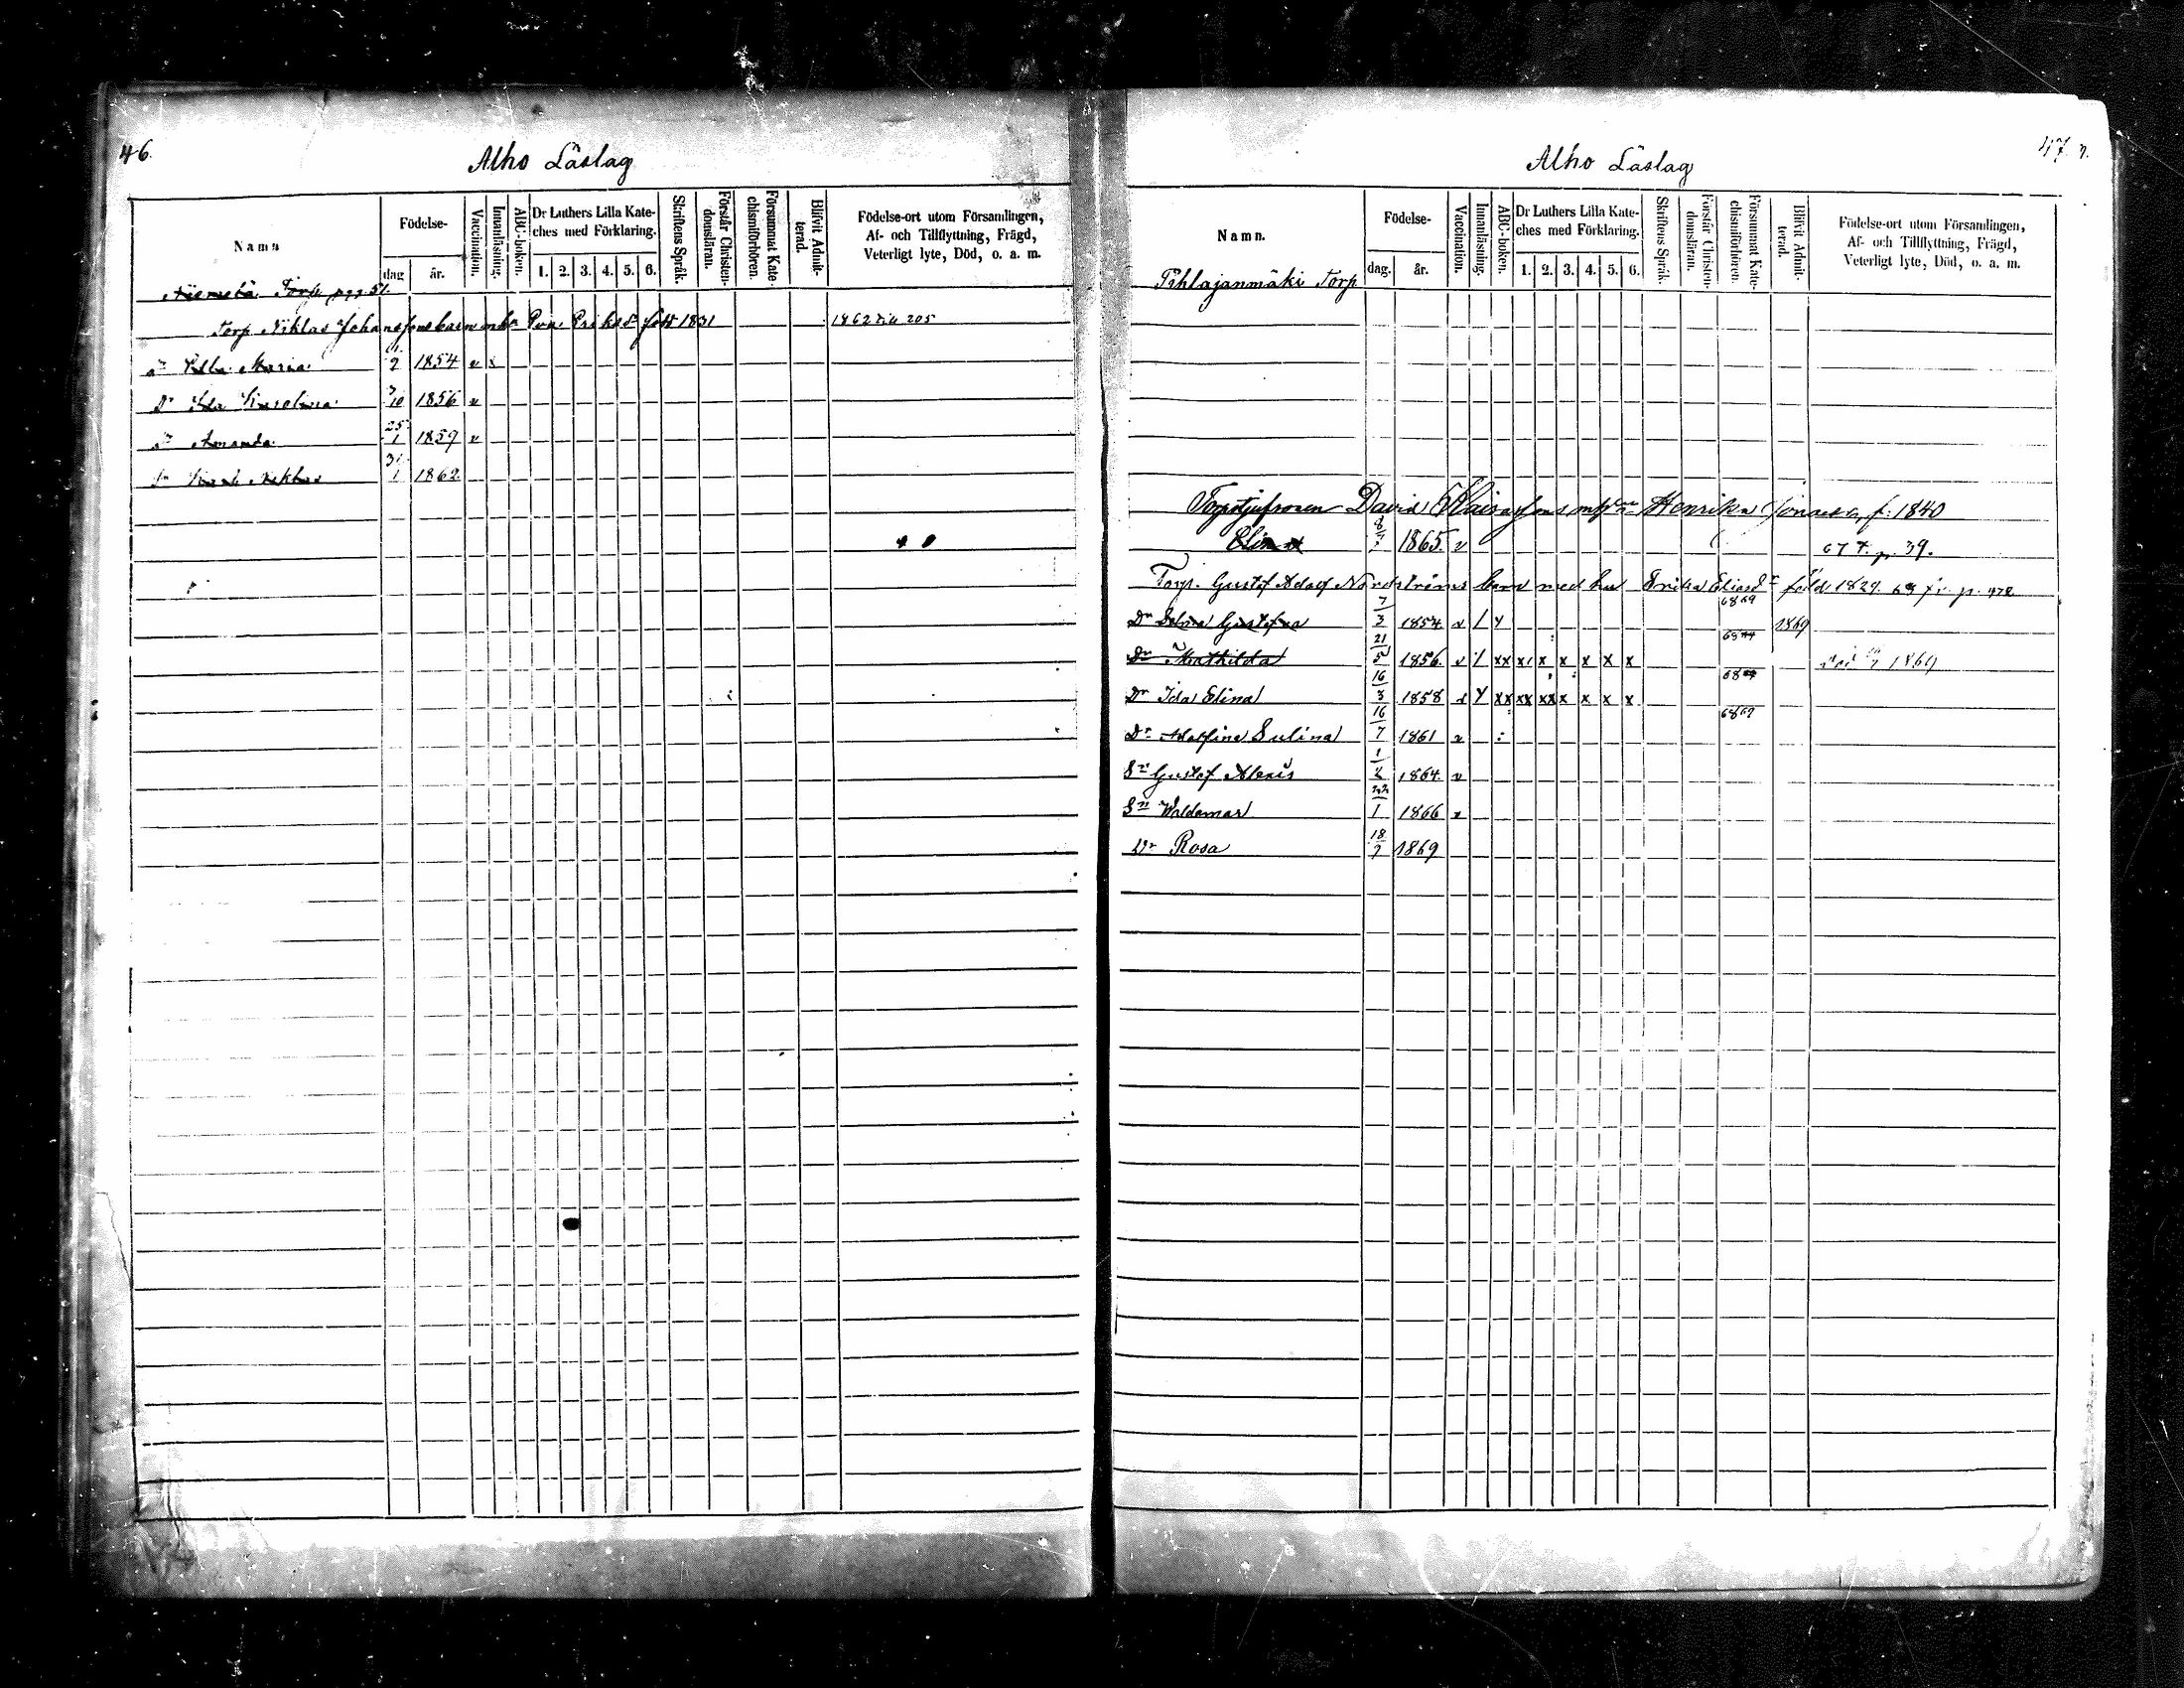 46.
Alho Läslag
Namn
Födelse-
dag
år.
Vaccination.
Innanläsning.
ABC-boken.
Dr Luthers Lilla Kate-
ches med Förklaring.
1. 2. 3. 4. 5. 6.
Skriftens Språk.
Förstår Christen-
domsläran.
Försummat Kate-
chismiförhören.
Blifvit Admit-
terad.
Födelse-ort utom Församlingen,
Af- och Tillflyttning, Frägd,
Veterligt lyte, Död, o. a. m.
Niemelä Torp pag 51.
Torp. Niklas Johanssons barn Eva född 1831 1862 205
Maria 2 1854 v x
Dr Ida Karolina 10 1856 v
Dr Amanda 25/1 1859 v
Niklas 31/1 1862
47.
Alho Läslag
Namn.
Födelse-
dag.
år.
Vaccination.
Innanläsning.
ABC-boken.
Dr Luthers Lilla Kate-
ches med Förklaring.
1. 2. 3. 4. 5. 6.
Skriftens Språk.
Förstår Christen-
domsläran.
Försummat Kate-
chismiförhören.
Blifvit Admit-
terad.
Födelse-ort utom Församlingen,
Af- och Tillflyttning, Frägd,
Veterligt lyte, Död, o. a. m.
Pihlajanmäki Torp
David Henrika f. 1840
Elin 8/7 1865. v 67 p. 39.
Torp. Gustaf Adolf Nordströms barn med hu Erika Eliasdr född 1829.
Dr Gustafva 7/3 1854 v 6869 1869
Dr Mathilda 21/5 1856 v xx x x x x x x 1869
Dr Ida Elina 16/3 1858 v xx xx xx x x x x
Dr Adolfina Sulina 16/7 1861 v 6869
Sn Gustaf Alexis 1864 v
Sn Waldemar 22/1 1866 v
Dr Rosa 18/7 1869